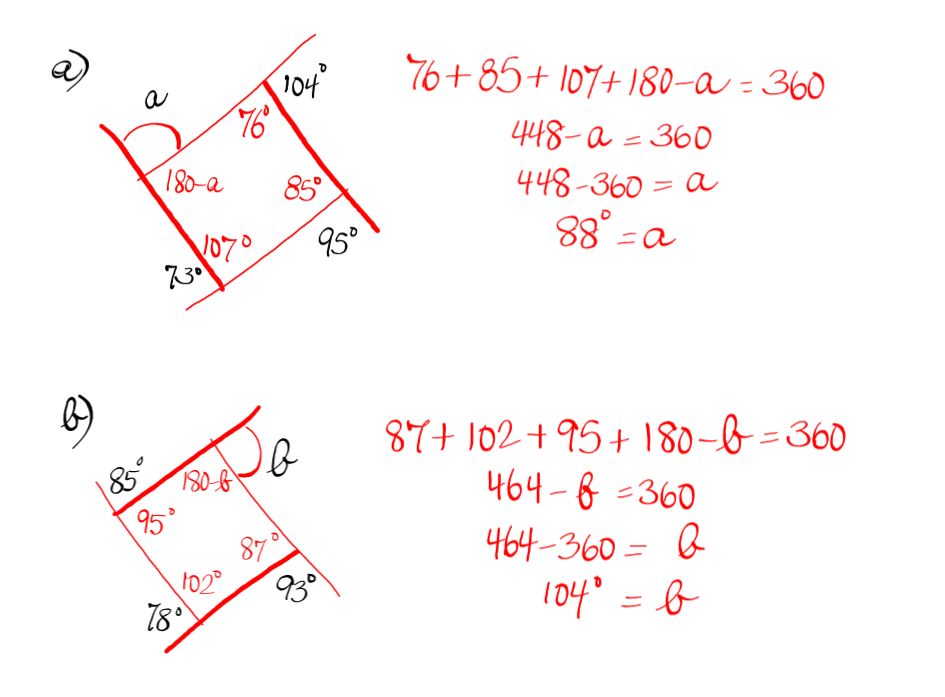 a)
a
104°
76°
180-a
85°
107°
95°
73°
76+85+107+180-a=360
448-a=360
448-360=a
88°=a
b)
b
85°
180-b
95°
87°
102°
93°
78°
87+102+95+180-b=360
464-b=360
464-360= b
104° = b